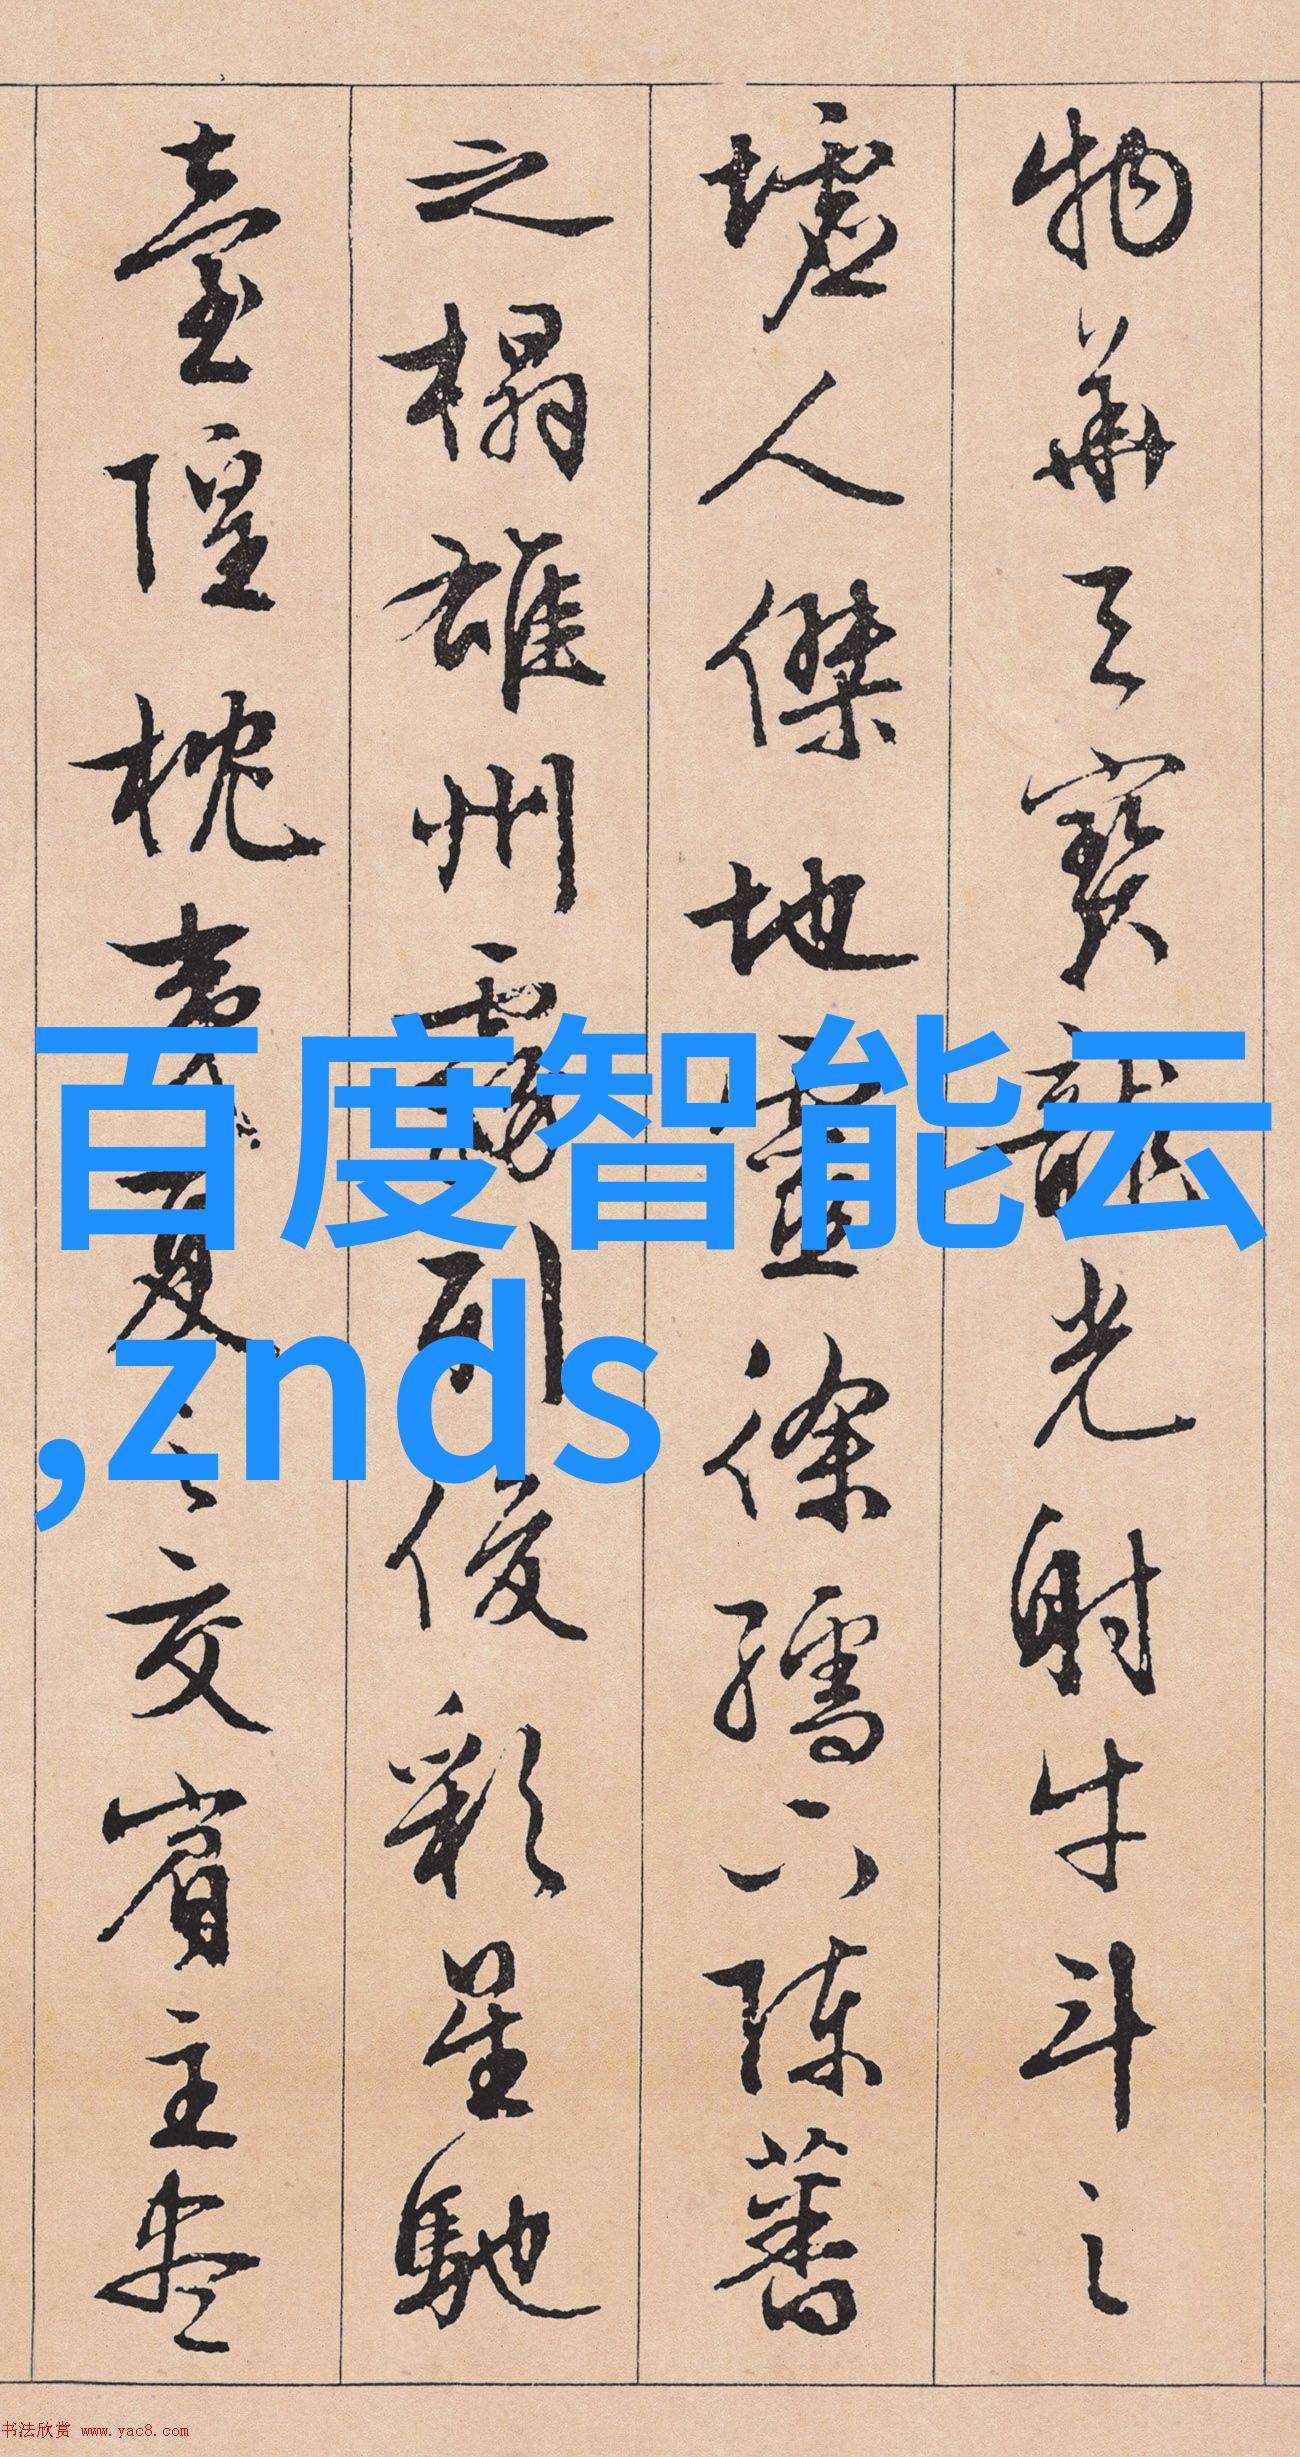 物華天寶龍光射牛斗之
墟人傑地靈徐孺下陳蕃
之榻雄州霧列俊彩星馳
臺隍枕夷夏之交賓主盡
百度智能云
,znds
书法欣赏 www.yac8.com